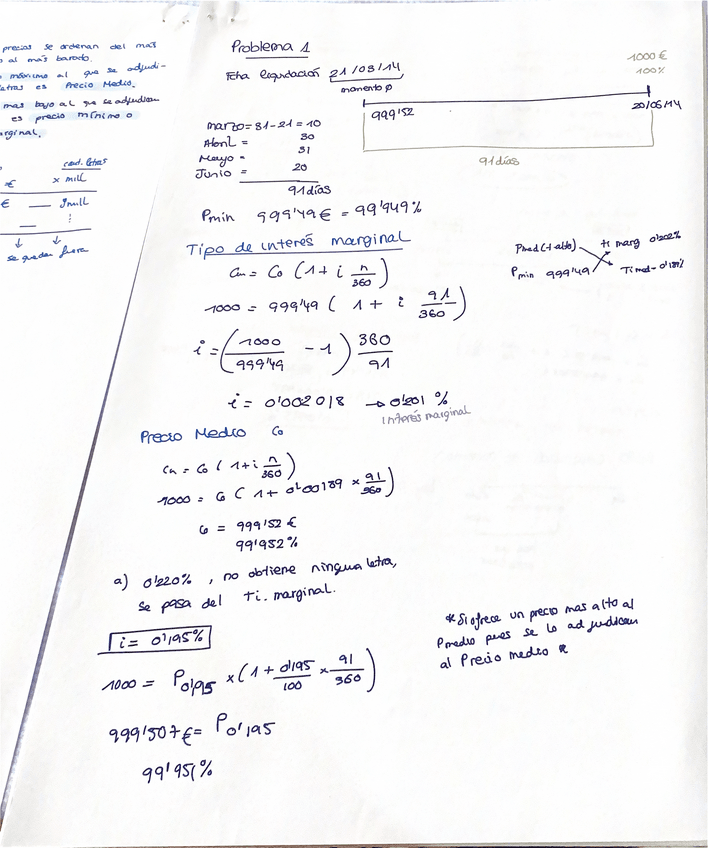 precios se ordenan del mas
al más barado.
máximo al que se adjudi-
letras es Precio Medio.
mas bajo al que se adjudican
es precio mínimo o
marginal.
cant. letras
€ x mill
€ — 9mill
se quedan fuera
Problema 1
Fcha liquidación 21/03/14
momento ø
1000 €
100%
999'52
20/06/14
91 días
marzo = 31-21 = 10
Abril = 30
Mayo = 31
Junio = 20
91 días
Pmin 999'49 € = 99'949%
Tipo de interés marginal
Cn = Co (1 + i n/360)
1000 = 999'49 ( 1 + i 91/360 )
i = ( 1000/999'49 - 1 ) 360/91
i = 0'002018 → 0'201 %
Interés marginal
Pmed (+ alto) ti marg 0'202%
Pmin 999'49 Ti med - 0'189%
Precio Medio Co
Cn = Co ( 1 + i n/360 )
1000 = Co ( 1 + 0'00189 x 91/360 )
Co = 999'52 €
99'952%
a) 0'220% , no obtiene ningua letra,
se pasa del Ti. marginal.
i = 0'195%
1000 = P0'195 x ( 1 + 0'195/100 x 91/360 )
999'507 € = P0'195
99'951%
* Si ofrece un precio mas alto al
Pmedio pues se lo adjudican
al Precio medio *